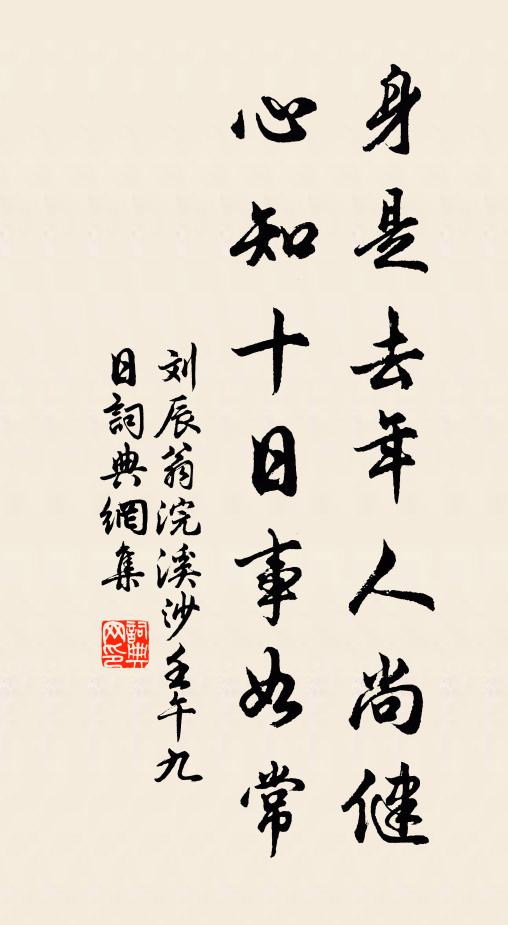 身是去年人尚健
心知十日事如常
刘辰翁浣溪沙壬午九
日詞典網集
詞典
网印